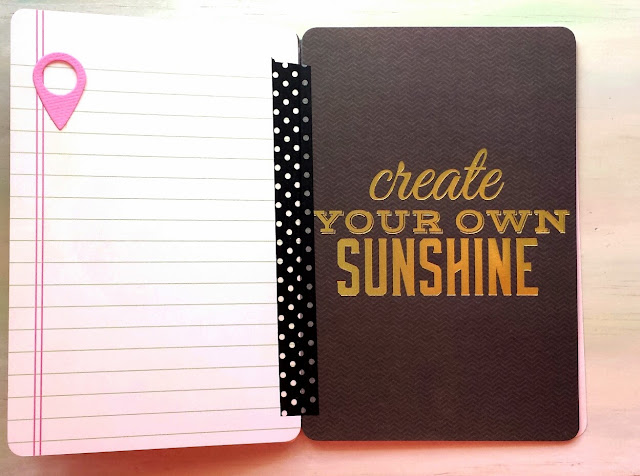 create
YOUR OWN
SUNSHINE